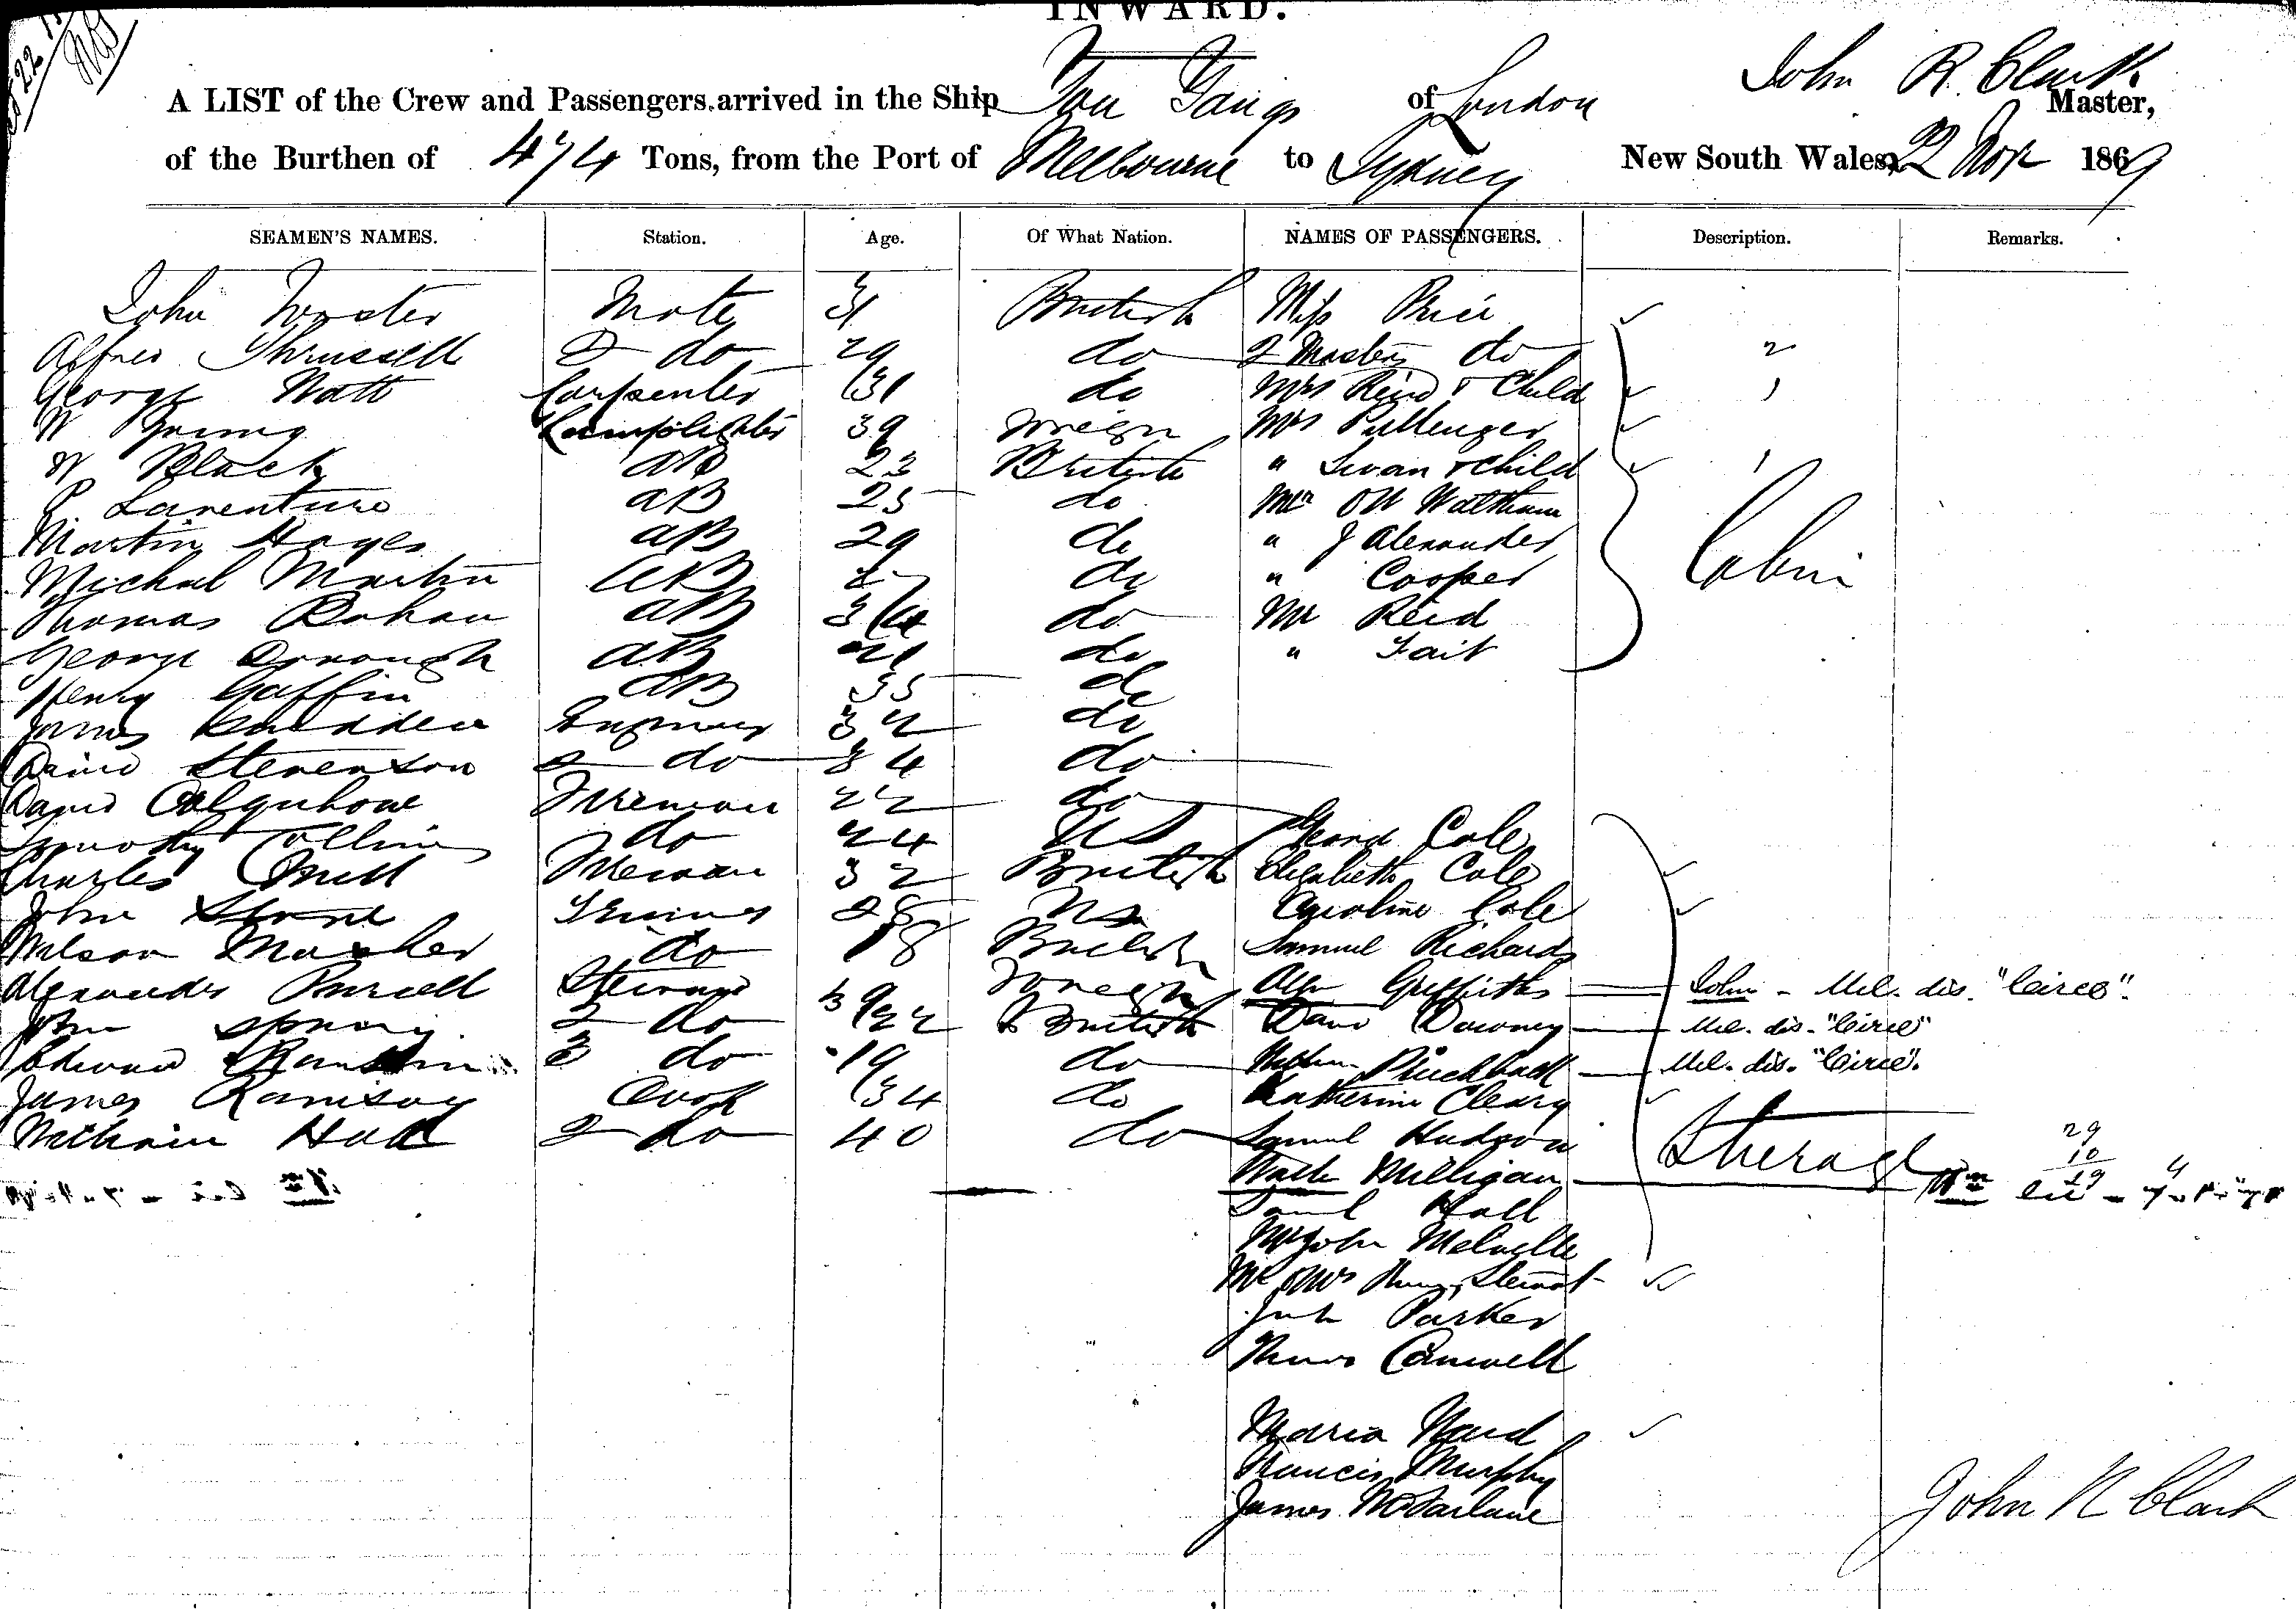 INWARD.
John R. Clark
A LIST of the Crew and Passengers, arrived in the Ship You Yangs of London Master,
of the Burthen of 474 Tons, from the Port of Melbourne to Sydney New South Wales, 22 Nov 1869
SEAMEN'S NAMES. Station. Age. Of What Nation. NAMES OF PASSENGERS. Description. Remarks.
John Mate 31 British Miss Price
Alfred Thrussell 2 do 29 do 2 Masters do 2
George Watt Carpenter 31 do Mrs Reid & Child 1
W Young Lamplighter 39 Foreign Mrs Puttenger
W Black AB 23 British " Swan & Child 1
P Laventure AB 25 do Mr O W Waltham
Martin Hayes AB 29 do " J Alexander
Michael Martin AB do " Cooper Cabin
Thomas Bohan AB 34 do Mr Reid
George AB 21 do " Tait
Henry Gaffin AB 35 do
James Engineer 32 do
David Stevenson 2 do 34 do
David Colquhoune Fireman 22 do
Timothy Collins do 24 US Cole
Charles Fireman 32 British Elizabeth Cole
John Stone Trimmer 28 US Caroline Cole
Wilson do 18 British Samuel Richards
Alexander Purcell Steward 39 Foreign Alfr Griffiths John - Mel. dis. "Circe".
John Spring 2 do 22 British David Downey Mel. dis. "Circe"
Edward 3 do 19 do Pinchback Mel. dis. "Circe".
James Ramsay Cook 34 do Katherine Cleary
William Hall 2 do 40 do Samuel Hudson Steerage 29
Milligan 10
Hall 19
Mr John Melville
Mr & Mrs Stewart
Parker
Thomas Camwell
Maria Ward
Francis Murphy
James McFarlane
John R Clark